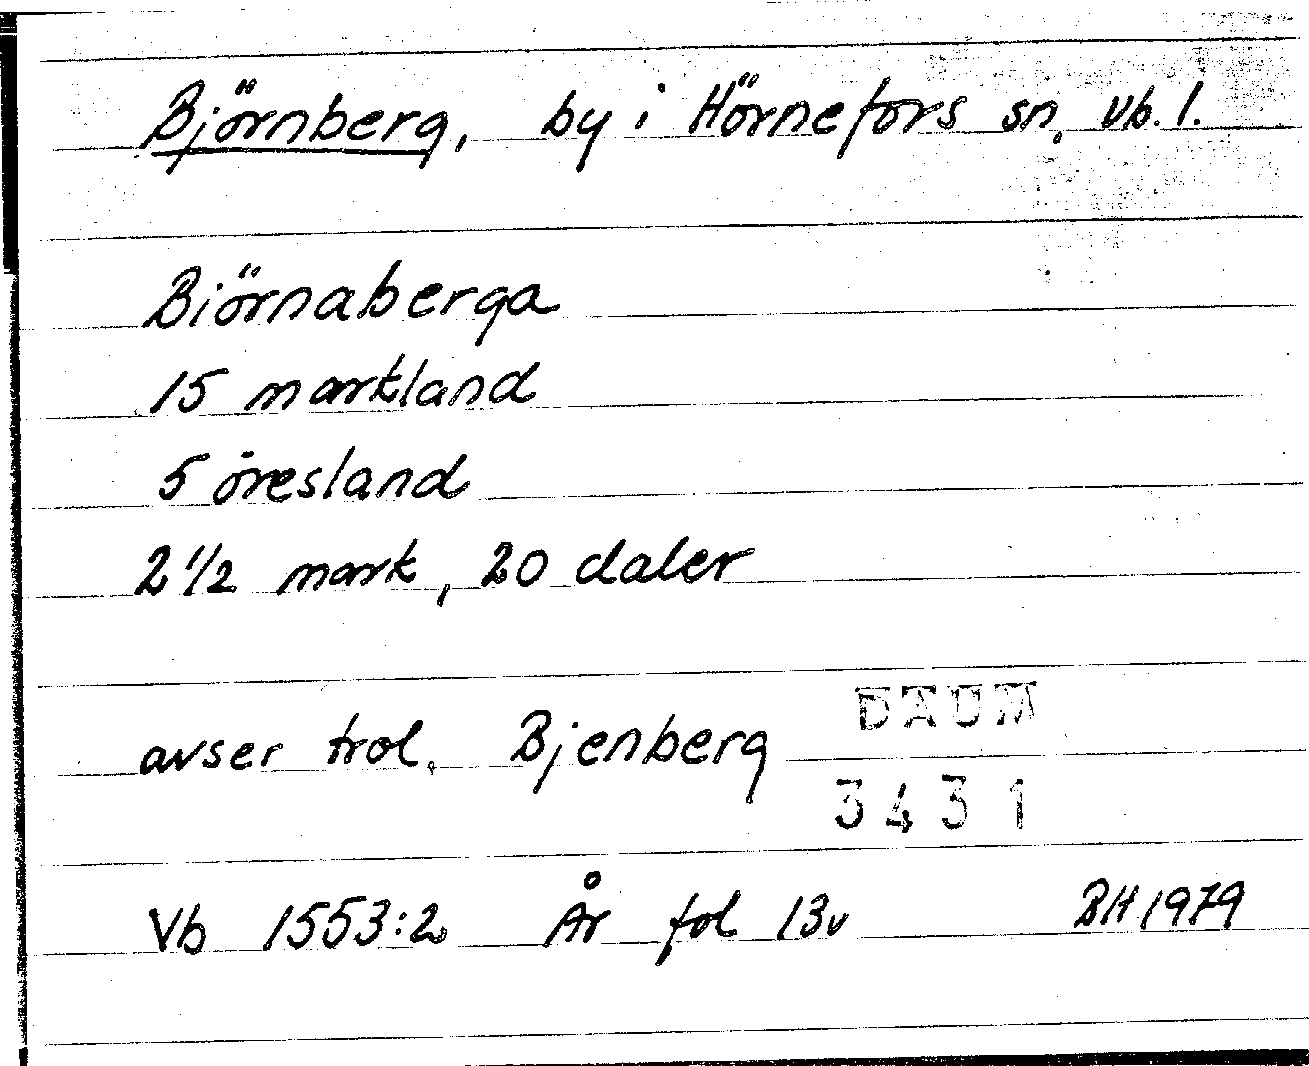 Björnberg, by i Hörnefors sn. Vb. l.
Biörnaberga
15 markland
5 öresland
2 1/2 mark, 20 daler
avser trol. Bjenberg
DAUM
3431
Vb 1553:2 År fol 13v BH 1979